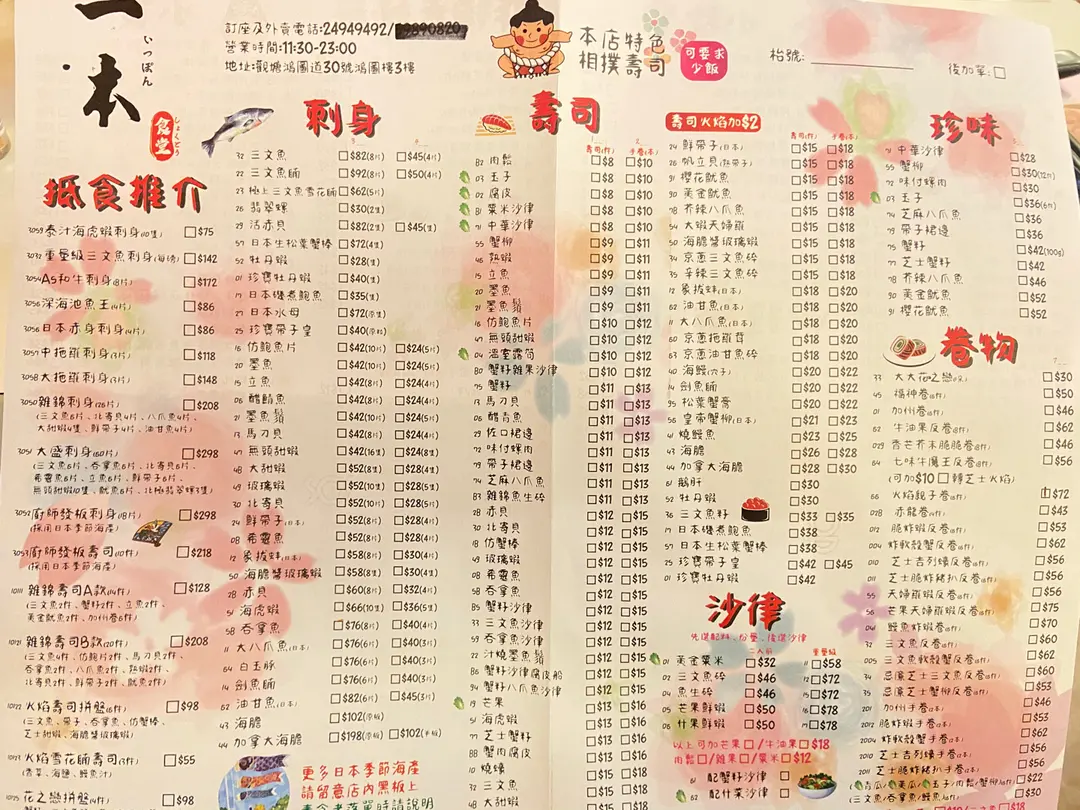 一本
いっぽん
食堂
しょくどう
訂座及外賣電話:24949492/
營業時間:11:30-23:00
地址:觀塘鴻圖道30號鴻圖樓3樓
本店特色
相撲壽司
可要求
少飯
枱號:
後加單:
抵食推介
3059 泰汁海虎蝦刺身(10隻) $75
3032 重量級三文魚刺身(每磅) $142
3054 A5和牛刺身(8片) $172
3056 深海池魚王(4片) $86
3056 日本赤身刺身(4片) $86
3057 中拖羅刺身(3片) $118
3058 大拖羅刺身(3片) $148
3050 雜錦刺身(26片) $208
(三文魚6片、北寄貝4片、八爪魚4片、
大甜蝦4隻、鮮帶子4片、油甘魚4片)
3051 大盛刺身(60片) $298
(三文魚6片、吞拿魚6片、北寄貝6片、
希靈魚6片、立魚6片、鮮帶子6片、
無頭甜蝦10隻、魷魚6片、北極翡翠螺3隻)
3052 廚師發板刺身(18片) $298
(採用日本季節海產)
3053 廚師發板壽司(10件) $218
(採用日本季節海產)
10111 雜錦壽司A款(14件) $128
(三文魚2件、蟹籽2件、立魚2件、
黃金魷魚2件、加州卷6件)
10121 雜錦壽司B款(20件) $208
10122 火焰壽司拼盤(6件) $98
(三文魚、帶子、吞拿魚、仿蟹棒、
芝士甜蝦、海膽醬玻璃蝦)
10123 火焰雪花師壽司(3件) $55
(香草、海鹽、鰻魚汁)
10125 花之戀拼盤(4件) $98
刺身
32 三文魚 $82(8片) $45(4片)
22 三文魚腩 $92(8片) $50(4片)
23 極上三文魚雪花腩 $62(5片)
26 翡翠螺 $30(2隻)
29 活赤貝 $82(2隻) $45(1隻)
57 日本生松葉蟹棒 $72(4隻)
52 牡丹蝦 $28(1隻)
01 珍寶牡丹蝦 $40(1隻)
17 日本磯煮鮑魚 $35(1隻)
27 日本水母 $72
25 珍寶帶子皇 $40
16 仿鮑魚片 $42(10片) $24(5片)
20 墨魚 $42(10片) $24(5片)
15 立魚 $42(8片) $24(4片)
06 醋鯖魚 $42(8片) $24(4片)
21 墨魚鬚 $42(10片) $24(5片)
13 馬刀貝 $42(8片) $24(4片)
47 無頭甜蝦 $42(16隻) $24(8隻)
48 大甜蝦 $52(8隻) $28(4隻)
49 玻璃蝦 $52(10隻) $28(5隻)
30 北寄貝 $52(10片) $28(5片)
24 鮮帶子(日本) $52(8片) $28(4片)
08 希靈魚 $52(8片) $28(4片)
12 象拔蚌(日本) $58(8片) $30(4片)
50 海膽醬玻璃蝦 $58(8隻) $31(4隻)
28 赤貝 $60(8片) $32(4片)
51 海虎蝦 $66(10隻) $36(5隻)
58 吞拿魚 $76(8片) $40(4片)
11 大八爪魚(日本) $76(6片) $40(3片)
64 白玉豚 $76(6片) $40(3片)
14 劍魚腩 $76(6片) $40(3片)
62 油甘魚(日本) $82(6片) $45(3片)
43 海膽 $102(原板)
44 加拿大海膽 $198(原板) $102(半板)
更多日本季節海產
請留意店內黑板上
壽司
壽司(件) 手卷(本)
82 肉鬆 $8 $10
03 玉子 $8 $10
02 腐皮 $8 $10
81 粟米沙律 $8 $10
71 中華沙律 $8 $10
55 蟹柳 $9 $11
46 熟蝦 $9 $11
15 立魚 $9 $11
20 墨魚 $9 $11
21 墨魚鬚 $9 $11
16 仿鮑魚片 $10 $12
47 無頭甜蝦 $10 $12
04 溫室露筍 $10 $12
80 蟹籽雜果沙律 $10 $12
75 蟹籽 $11 $13
13 馬刀貝 $11 $13
06 醋青魚 $11 $13
29 佐口裙邊 $11 $13
72 味付螺肉 $11 $13
79 帶子裙邊 $11 $13
74 芝麻八爪魚 $11 $13
83 雜錦魚生碎 $12 $15
28 赤貝 $12 $15
30 北寄貝 $12 $15
18 仿蟹棒 $12 $15
49 玻璃蝦 $12 $15
08 希靈魚 $12 $15
58 吞拿魚 $12 $15
85 蟹籽沙律 $12 $15
33 三文魚沙律 $12 $15
59 吞拿魚沙律 $12 $15
22 汁燒墨魚鬚 $12 $15
86 蟹籽沙律腐皮船 $12 $15
94 蟹籽八爪魚沙律 $12 $15
19 芒果 $13 $16
51 海虎蝦 $13 $16
77 芝士蟹籽 $13 $16
88 蟹肉腐皮 $13 $16
10 燒蠔 $13 $16
32 三文魚 $15 $18
48 大甜蝦 $15 $18
壽司火焰加$2
壽司(件) 手卷(本)
24 鮮帶子(日本) $15 $18
26 帆立貝(熟帶子) $15 $18
91 櫻花魷魚 $15 $18
90 黃金魷魚 $15 $18
78 芥辣八爪魚 $15 $18
54 大蝦天婦羅 $15 $18
50 海膽醬玻璃蝦 $15 $18
34 京蔥三文魚碎 $15 $18
35 辛辣三文魚碎 $15 $18
12 象拔蚌(日本) $18 $20
62 油甘魚(日本) $18 $20
11 大八爪魚(日本) $18 $20
60 京蔥拖羅茸 $18 $20
63 京蔥油甘魚碎 $18 $20
40 海鰻(穴子) $20 $22
14 劍魚腩 $20 $22
95 松葉蟹膏 $20 $22
56 皇帝蟹柳(日本) $21 $23
41 燒鰻魚 $23 $25
43 海膽 $26 $28
44 加拿大海膽 $28 $30
61 鵝肝 $30
52 牡丹蝦 $30
36 三文魚籽 $33 $35
17 日本磯煮鮑魚 $38
57 日本生松葉蟹棒 $38
25 珍寶帶子皇 $42 $45
01 珍寶牡丹蝦 $42
沙律
先選配料、份量、後選沙律
二人前 重量級
01 黃金粟米 $32 11 $58
02 三文魚碎 $46 12 $72
04 魚生碎 $46 14 $72
05 芒果鮮蝦 $50 $78
06 什果鮮蝦 $50 $78
以上可加芒果/牛油果$18
肉鬆/雜果/粟米$12
61 配蟹籽沙律
62 配什菜沙律
珍味
71 中華沙律 $28
55 蟹柳 $30(12件)
72 味付螺肉 $30
03 玉子 $36(6件)
74 芝麻八爪魚 $36
79 帶子裙邊 $36
75 蟹籽 $42(100g)
77 芝士蟹籽 $42
78 芥辣八爪魚 $46
90 黃金魷魚 $52
91 櫻花魷魚 $52
卷物
33 大大花之戀 $30
45 福神卷(8件) $50
01 加州卷(8件) $46
62 牛油果反卷(8件) $62
029 香芒芥末脆脆卷(8件) $46
64 七味牛魔王反卷(8件) $56
(可加$10 轉芝士火焰)
66 火焰親子卷(8件) $72
028 赤龍卷(8件) $43
012 脆炸蝦反卷(8件) $53
004 炸軟殼蟹反卷(8件) $62
010 芝士吉列蠔反卷(8件) $56
011 芝士脆炸豬扒反卷(8件) $56
55 天婦羅蝦反卷(8件) $56
56 芒果天婦羅蝦反卷(8件) $75
041 鰻魚炸蝦卷(8件) $70
32 三文魚反卷(8件) $60
005 三文魚軟殼蟹反卷(8件) $62
34 惡魔芝士三文魚反卷(8件) $60
35 惡魔芝士蟹柳反卷(8件) $53
201 加州手卷(2本) $46
2012 脆炸蝦手卷(2本) $53
2004 炸軟殼蟹手卷(2本) $62
2010 芝士吉列蠔手卷(2本) $56
2011 芝士脆炸豬扒手卷(2本) $56
(青瓜/黃瓜/玉子/肉鬆/蟹柳)卷(6件) $22
(三文魚/吞拿魚/鰻魚)卷(6件)